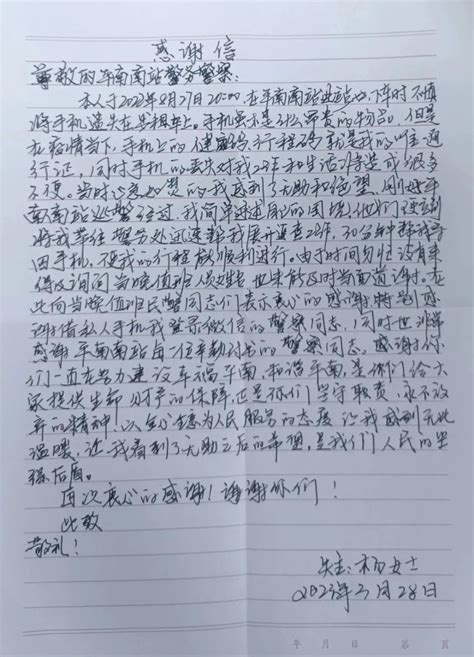 感谢信
尊敬的平南南站警务警察:
本人于2023年3月27日20:00,在平南南站进站口,下车时不慎
将手机遗失在另外租车上。手机虽不是什么昂贵的物品,但是
在疫情当下,手机上的健康码、行程码就是我的唯一通
行证,同时手机的丢失对我工作和生活将造成很多
不便。当时心急如焚的我感到了无助和绝望,刚好平
南南站处警经过,我简单述说自己的困境,他们立刻
将我带往警务处迅速帮我展开追查工作,30分钟帮我寻
回手机,使我的行程顺利进行。由于时间匆忙没有来
得及询问当晚值班人员姓名,也未能及时当面道谢。在
此向当晚值班民警同志们表示衷心的感谢,特别感
谢借私人手机我登录微信的警察同志,同时也非常
感谢平南南站每一位辛勤付出的警察同志,感谢你
们一直在努力建设幸福平南,和谐平南,是你们给大
家提供生命财产的保障,正是你们坚守职责,永不放
弃的精神,以全心全意为人民服务的态度让我感到无比
温暖,让我看到了无助之后的希望,是我们人民的坚
强后盾。
再次衷心的感谢!谢谢你们!
此致
敬礼!
失主:杨女士
2023年3月28日
年 月 日 第 页